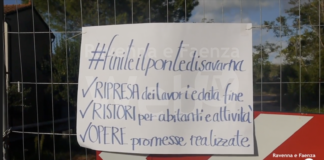 #finiteilpontedisavarna
✓RIPRESA dei lavori e data fine
✓RISTORI per abitanti e attività
✓OPERE promesse realizzate
Ravenna e Faenza